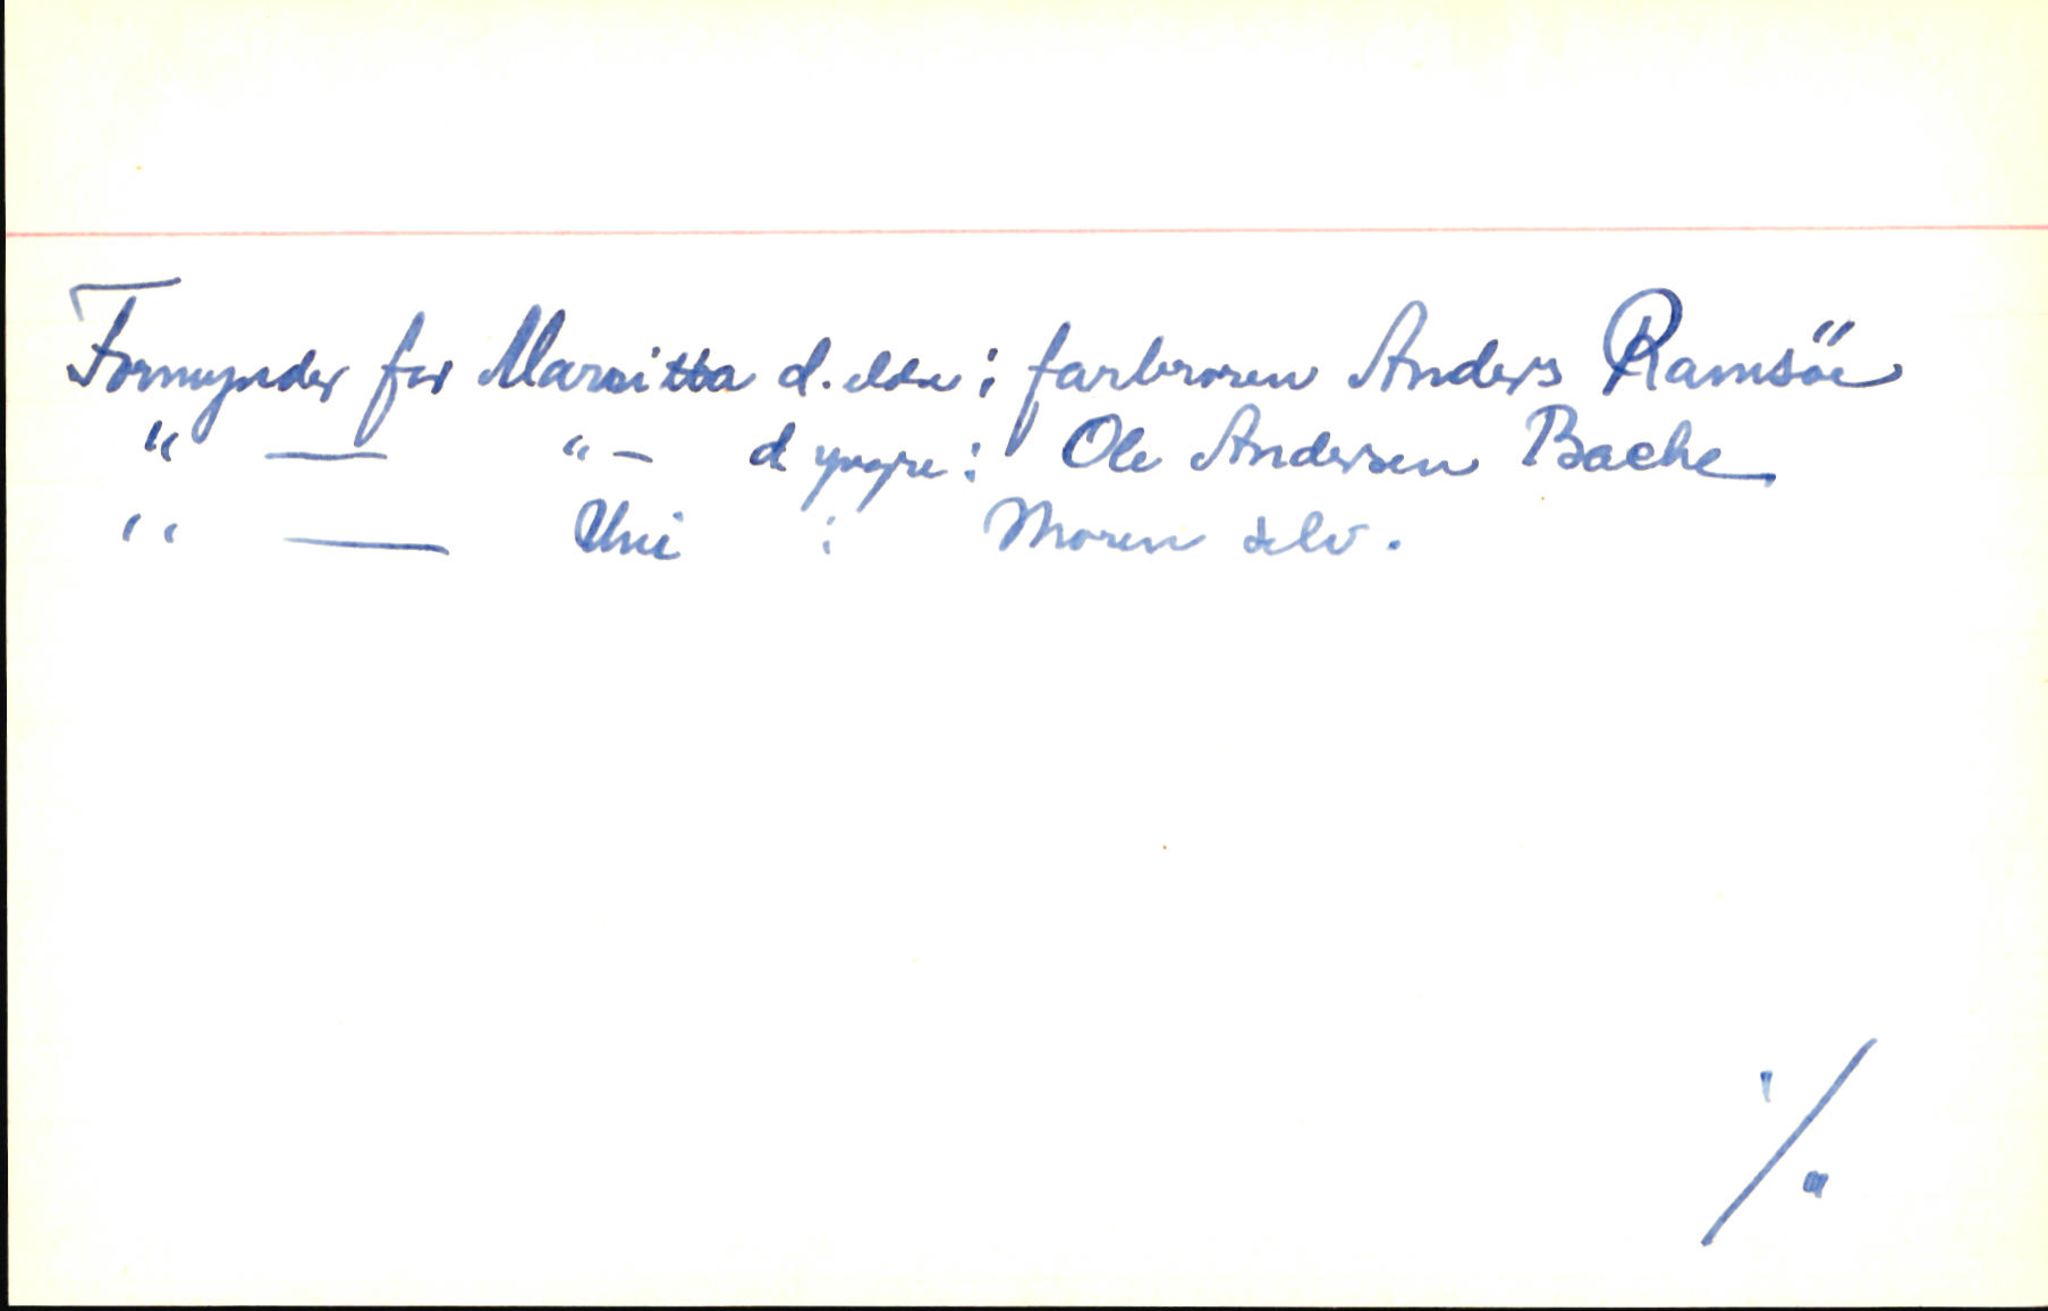 Formynder for Maritta d. eldre: farbroren Anders Ramsöe
" — " – d yngre: Ole Andersen Bache
" — Uni : Moren selv.